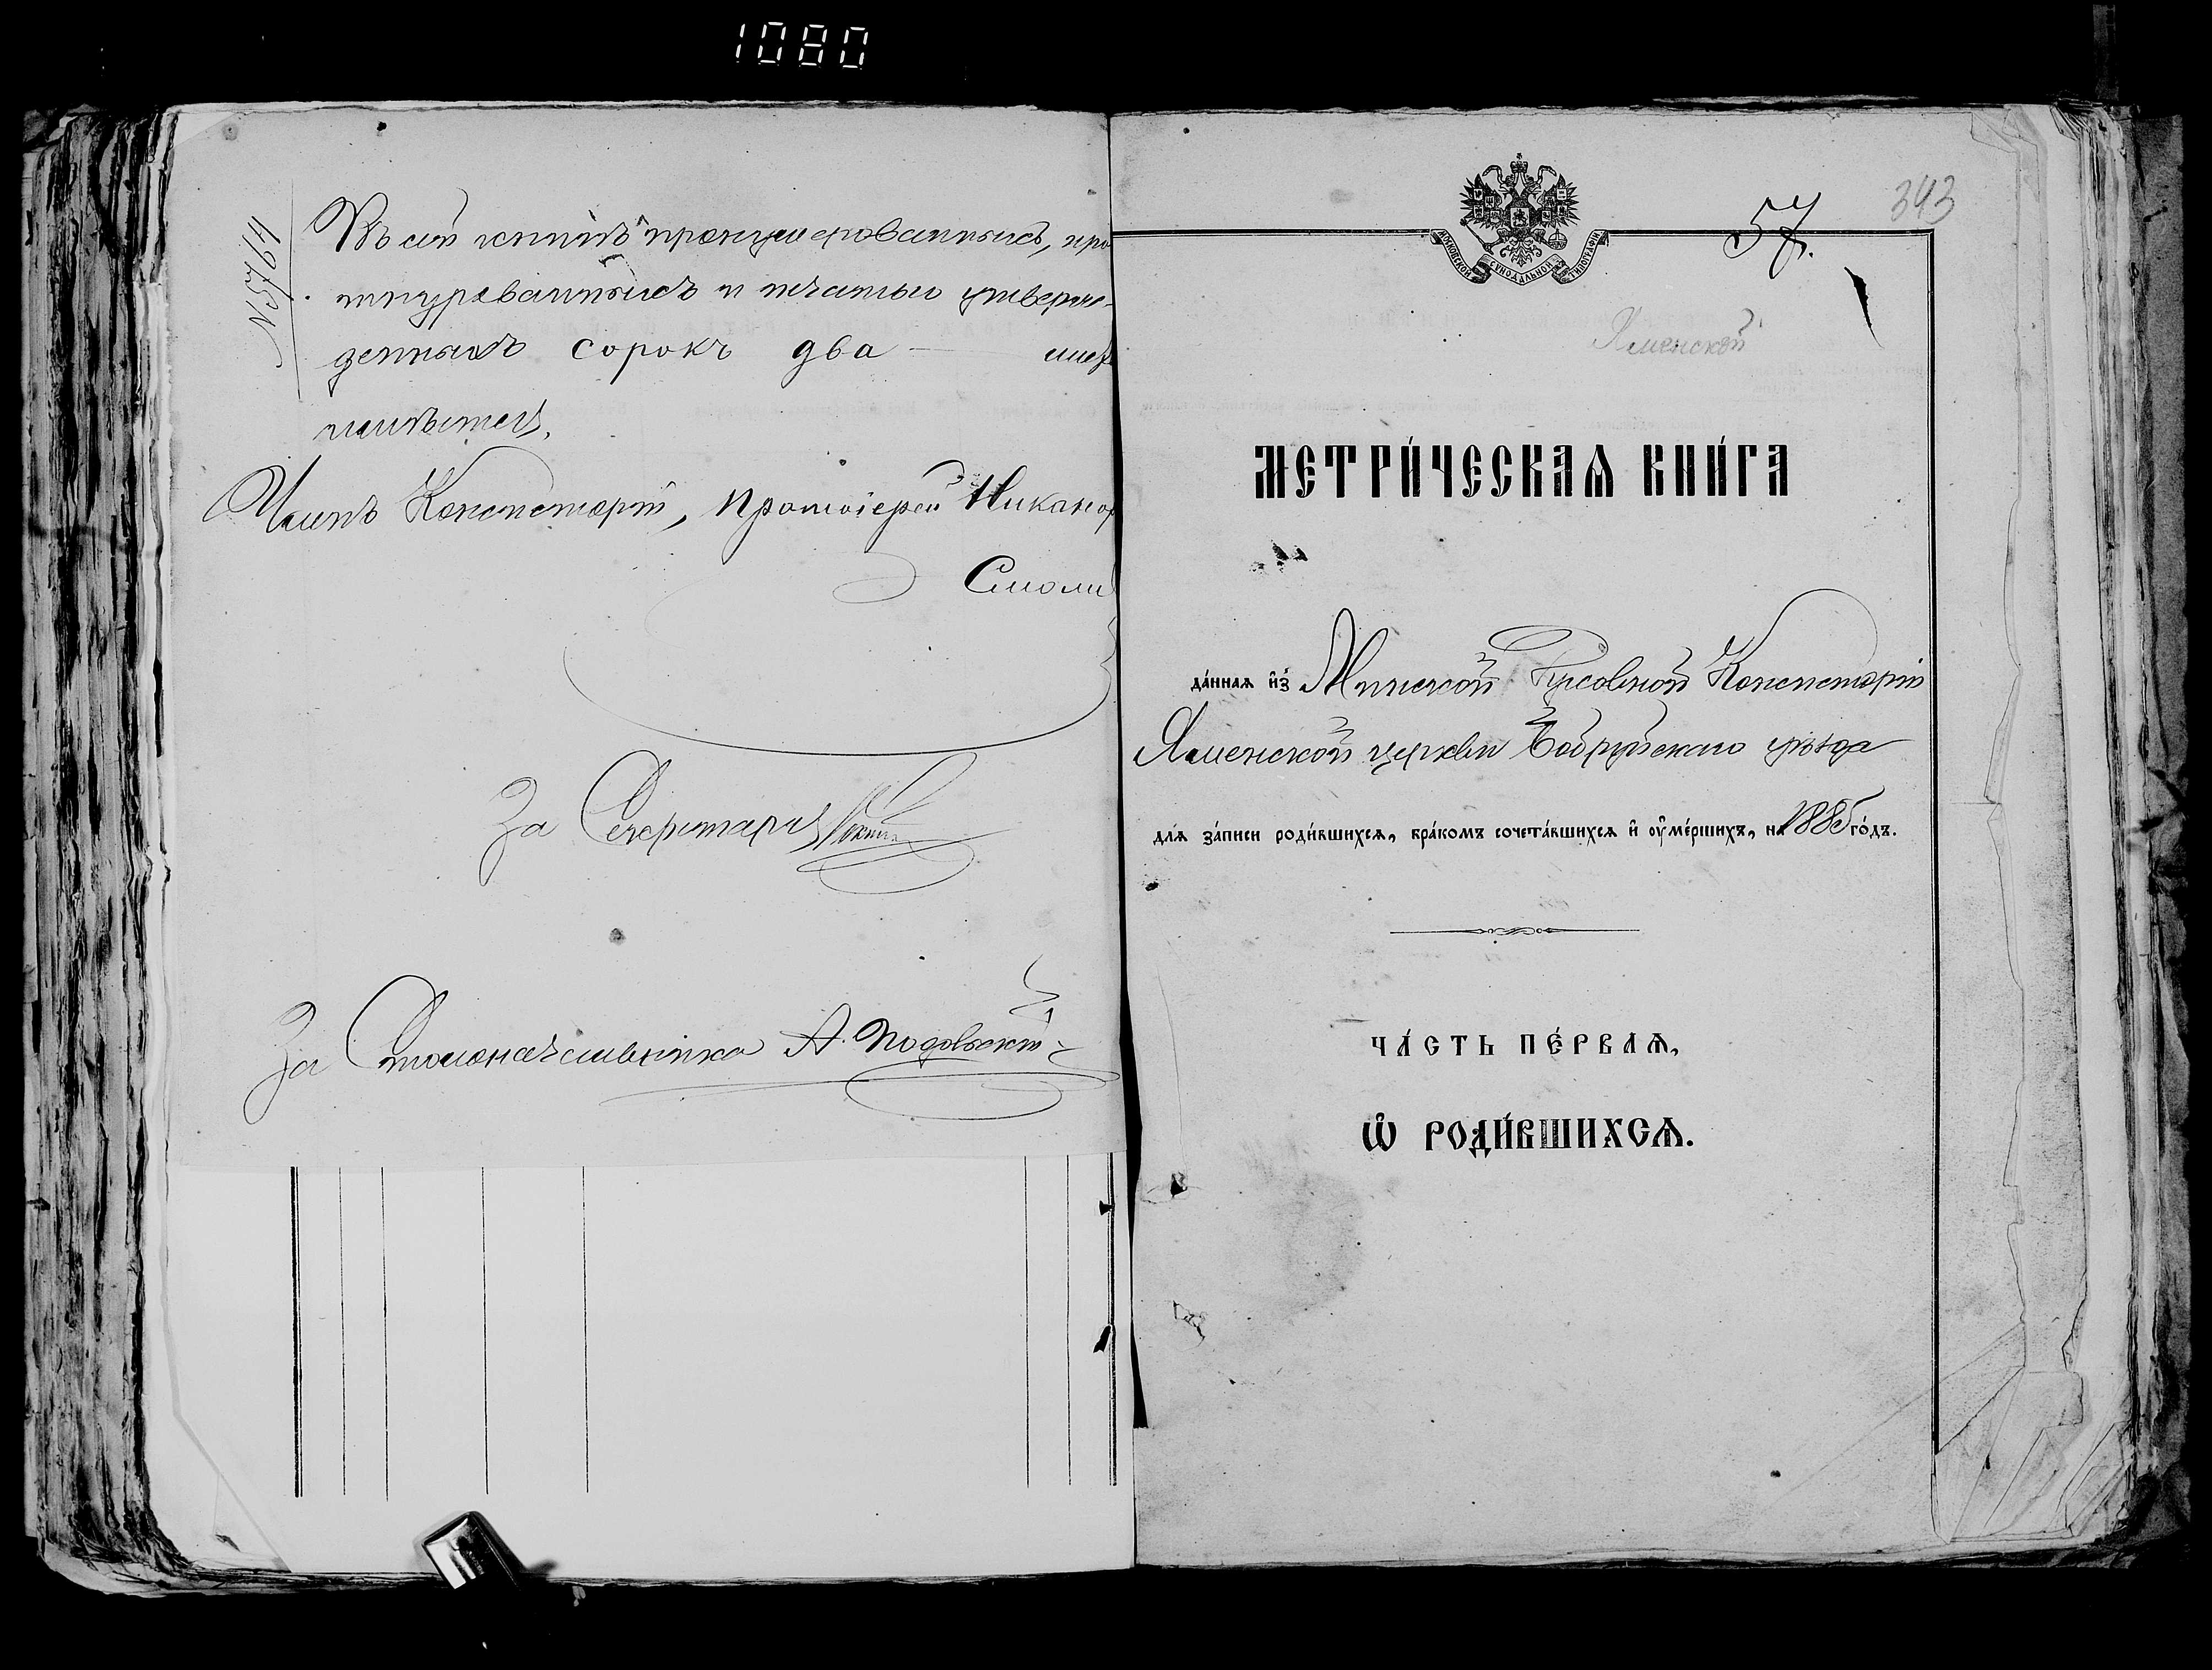 1080
№5764
Въ сей книгѣ пронумерованныхъ, про
шнурованныхъ и печатью утверж-
денныхъ сорокъ два — лис
имѣется.
Членъ Консисторіи, Протоіерей Никанор
Смоли
За Секретаря
За Столоначальника А.
343
57.
МОСКОВСКОЙ СѴНОДАЛЬНОЙ ТИПОГРАФІИ
Яменской
МЕТРИ́ЧЕСКАѦ КНИ́ГА
да́ннаѧ и҆з̾ Минской Духовной Консисторіи
Яменской церкви Бобруйскаго уѣзда
длѧ̀ за́писи роди́вшихсѧ, бра́комъ сочета́вшихсѧ и҆ ѹ҆ме́ршихъ, на 1885 го́дъ.
ЧА́СТЬ ПЕ́РВАѦ,
Ѡ҆ РОДИ́ВШИХСѦ.